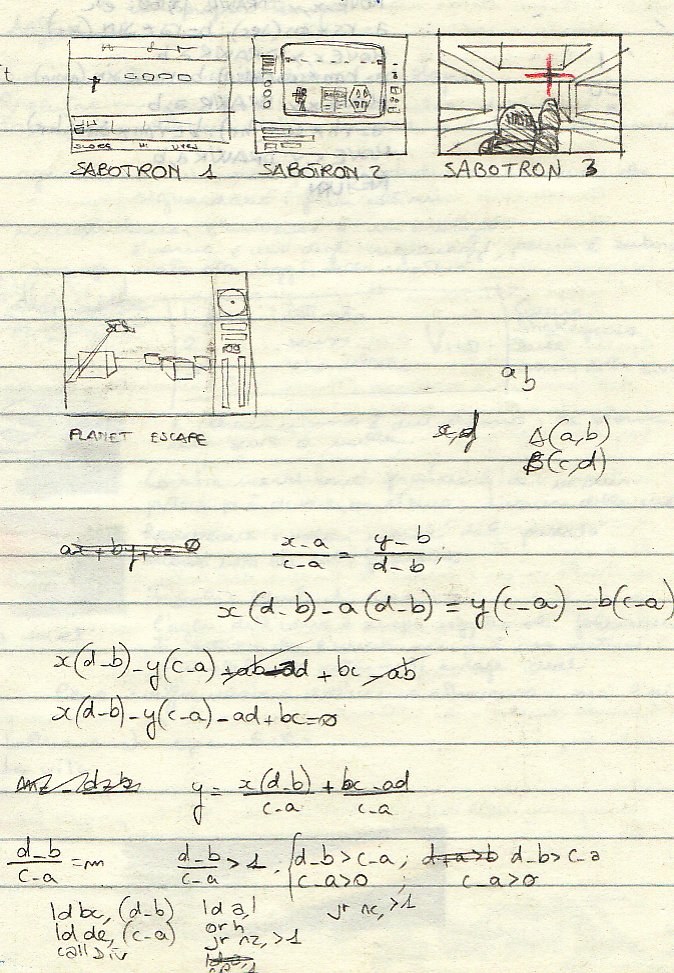 t
SCORE HI
SABOTRON 1
SABOTRON 2
SABOTRON 3
PLANET ESCAPE
a b
x,y A(a,b)
B(c,d)
ax+by+c=0
x-a / c-a = y-b / d-b ;
x(d-b)-a(d-b)=y(c-a)-b(c-a)
x(d-b)-y(c-a)+ab-ad+bc-ab
x(d-b)-y(c-a)-ad+bc=0
y = x(d-b) / c-a + bc-ad / c-a
d-b / c-a = m
d-b / c-a > 1 . { d-b>c-a ; d+a>b d-b>c-a
c-a>0 ; c-a>0
ld bc, (d-b) ld a,l jr nc,>1
ld de, (c-a) or h
call div jr nz,>1